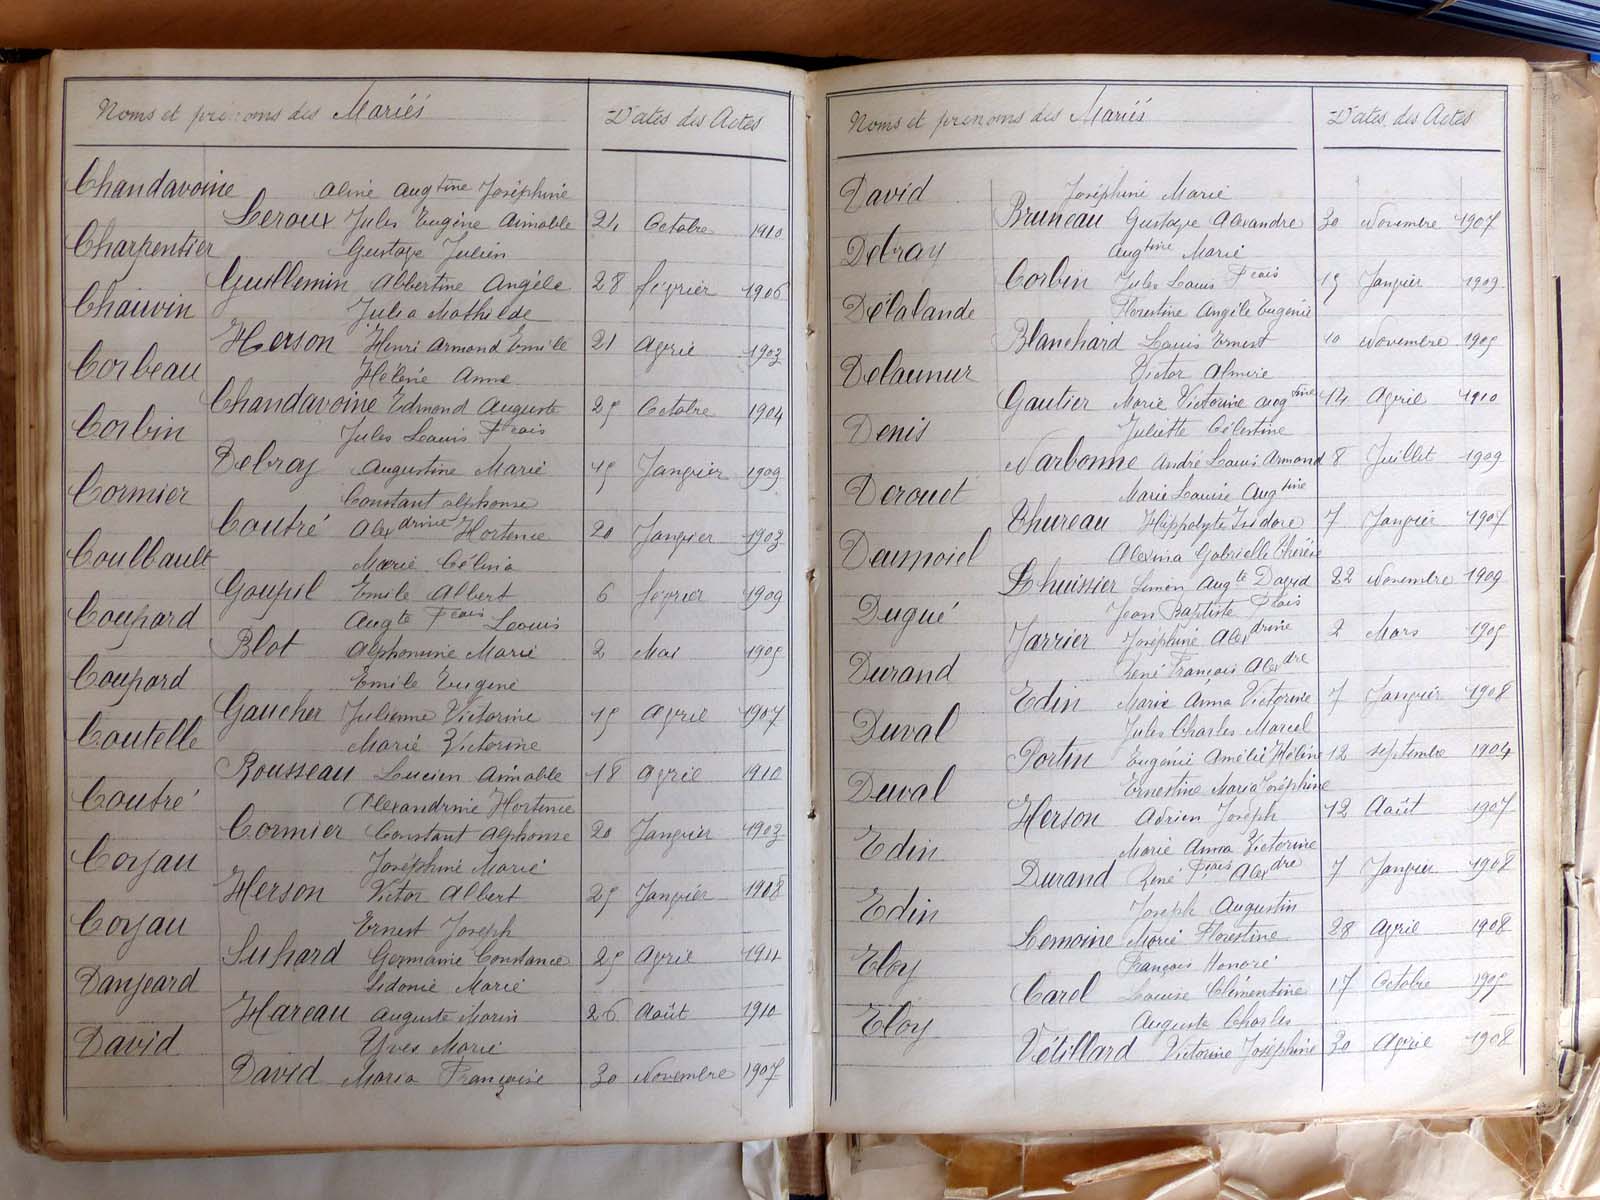 Noms et prénoms des Mariés Dates des Actes
Chandavoine Aline Augtine Joséphine
Leroux Jules Eugène Aimable 24 Octobre 1910
Charpentier Gustave Julien
Guillemin Albertine Angèle 28 février 1906
Chauvin Julia Mathilde
Herson Henri Armand Emile 21 Avril 1903
Corbeau Hélène Anne
Chandavoine Edmond Auguste 25 Octobre 1904
Corbin Jules Louis Fcois
Delray Augustine Marie 15 Janvier 1909
Cormier Constant Alphonse
Coutré Alexdrine Hortence 20 Janvier 1903
Coulbault Marie Célina
Goupil Emile Albert 6 février 1909
Coupard Augte Fcois Louis
Blot Alphonsine Marie 2 Mai 1905
Coupard Emile Eugène
Gaucher Julienne Victorine 15 Avril 1907
Coutelle Marie Victorine
Rousseau Lucien Aimable 18 Avril 1910
Coutré Alexandrine Hortence
Cormier Constant Alphonse 20 Janvier 1903
Coyau Joséphine Marie
Herson Victor Albert 25 Janvier 1908
Coyau Ernest Joseph
Suhard Germanie Constance 25 Avril 1911
Danjeard Sidonie Marie
Hareau Auguste Marin 26 Août 1910
David Yves Marie
David Maria Françoise 30 Novembre 1907
Noms et prénoms des Mariés Dates des Actes
David Joséphine Marie
Bruneau Gustave Alexandre 30 Novembre 1907
Delray Augtine Marie
Corbin Jules Louis Fcois 15 Janvier 1909
Délalande Florestine Angèle Eugénie
Blanchard Louis Ernest 10 Novembre 1905
Delaunur Victor Almire
Gautier Marie Victorine Augtine 14 Avril 1910
Denis Juliette Célestine
Narbonne André Louis Armand 8 Juillet 1909
Derouet Marie Louise Augtine
Thureau Hippolyte Isidore 7 Janvier 1907
Deumoiel Alexina Gabrielle Thérèse
Lhuissier Simon Augte David 22 Novembre 1909
Dugué Jean Baptiste Fcois
Jarrier Joséphine Alexdrine 2 Mars 1905
Durand René François Alexdre
Edin Marie Anna Victorine 7 Janvier 1908
Duval Jules Charles Marcel
Portin Eugénie Amélie Hélène 12 Septembre 1904
Duval Ernestine Maria Joséphine
Herson Adrien Joseph 12 Août 1907
Edin Marie Anna Victorine
Durand René Fcois Alexdre 7 Janvier 1908
Edin Joseph Augustin
Lemoine Marie Florestine 28 Avril 1908
Eloy François Honoré
Carel Louise Clémentine 17 Octobre 1905
Eloy Auguste Charles
Vétillard Victorine Joséphine 30 Avril 1908